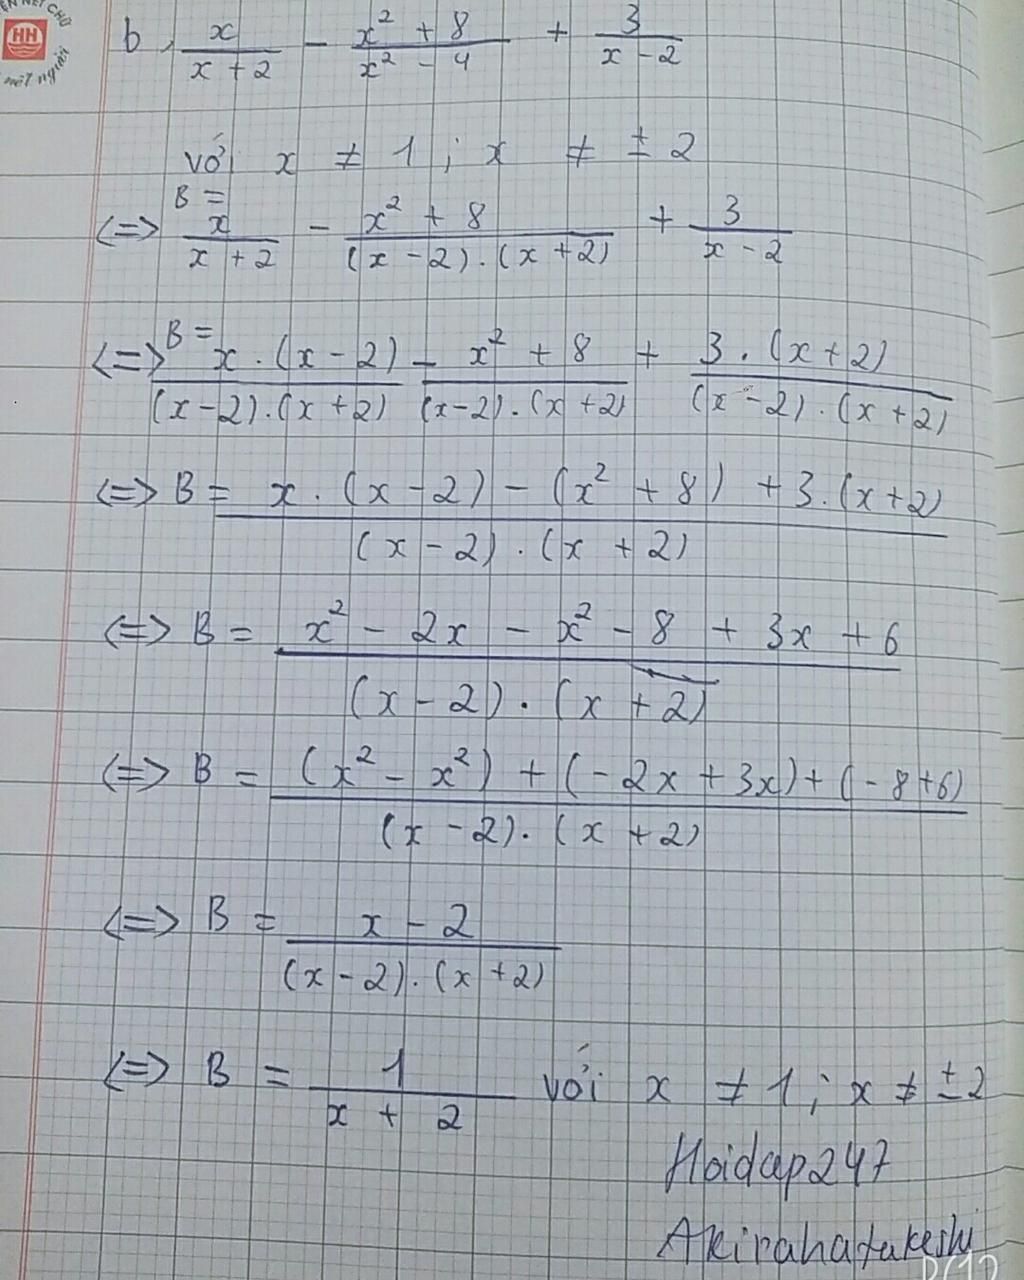 HH
b, x/(x + 2) - (x² + 8)/(x² - 4) + 3/(x - 2)
với x ≠ 1 ; x ≠ ± 2
<=> B = x/(x + 2) - (x² + 8)/((x - 2).(x + 2)) + 3/(x - 2)
<=> B = x.(x - 2)/((x - 2).(x + 2)) - (x² + 8)/((x - 2).(x + 2)) + 3.(x + 2)/((x - 2).(x + 2))
<=> B = (x.(x - 2) - (x² + 8) + 3.(x + 2))/((x - 2).(x + 2))
<=> B = (x² - 2x - x² - 8 + 3x + 6)/((x - 2).(x + 2))
<=> B = ((x² - x²) + (-2x + 3x) + (-8 + 6))/((x - 2).(x + 2))
<=> B = (x - 2)/((x - 2).(x + 2))
<=> B = 1/(x + 2) với x ≠ 1 ; x ≠ ± 2
Hoidap247
Akirahatakeshi